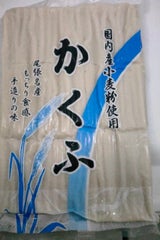 国内産小麦粉使用
かくふ
尾張名産
もっちり食感
手造りの味